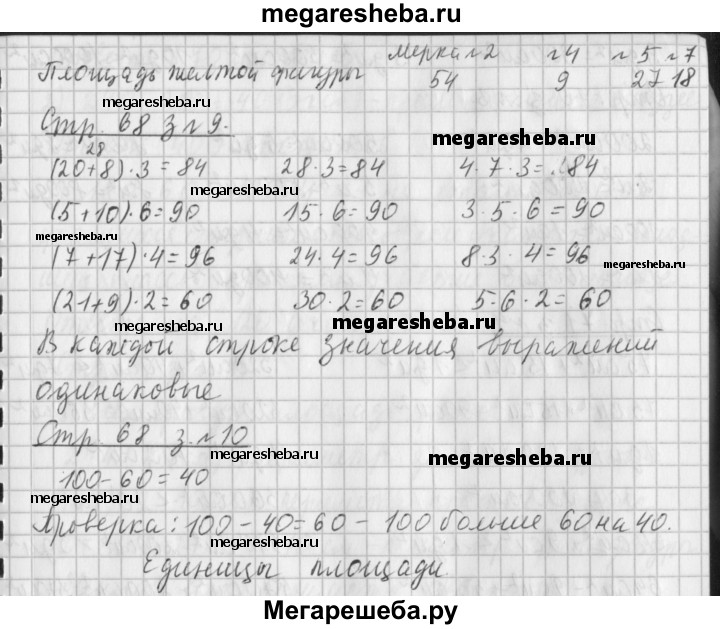 megaresheba.ru
мерка №2 №4 №5 №7
Площадь желтой фигуры 54 9 27 18
megaresheba.ru
Стр. 68 з №9.
megaresheba.ru
28
(20+8)·3=84 28·3=84 4·7·3=84
megaresheba.ru
(5+10)·6=90 15·6=90 3·5·6=90
megaresheba.ru
(7+17)·4=96 24·4=96 8·3·4=96
megaresheba.ru
(21+9)·2=60 30·2=60 5·6·2=60
megaresheba.ru megaresheba.ru
В каждой строке значения выражений
одинаковые
Стр. 68 з. №10
megaresheba.ru megaresheba.ru
100-60=40
megaresheba.ru
Проверка: 100-40=60 - 100 больше 60 на 40.
megaresheba.ru
Единицы площади.
megaresheba.ru megaresheba.ru
Мегарешеба.ру